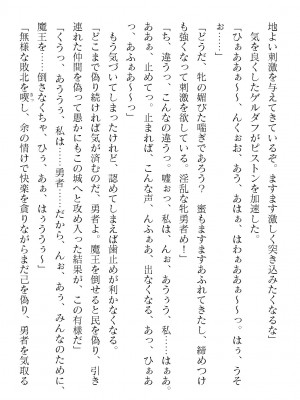 地よい刺激を与えているぞ。ますます激しく突き込みたくなるな」
気を良くしたゲルダフがピストンを加速した。
「ひぁぁああ～～、んくぉお、あう、あはぁ、はわぁああぁ～～っ。はぅ、うそ
ぉ……」
「どうだ、牝の媚びた喘ぎであろう？　蜜もますますあふれてきたし、締めつけ
も強くなって刺激を欲している。淫乱な牝勇者め！」
「ち、違うっ、こんなの違うっ。嘘ぉっ、私は、んぉ、あうぅう、私……はぁあ、
ああぁ、止めてっ。止まれば、こんな声、んふぁぁあ、出なくなる、あっ、ひぁあ
っ、あふぁあ～っ」
もう気づいてしまったけれど、認めてしまえば歯止めが利かなくなる。
「どこまで偽り続ければ気が済むのだ、勇者よ。魔王を倒せると民を偽り、引き
連れた仲間を偽って愚かにもこの城へと攻め入った結果が、この有様だ」
「くうっ、あううぅ、私は……勇者……だから、んぉ、あぅ、みんなのために、
魔王を……倒さなくちゃ、ひぅ、あぁ、はぅううぅ～」
「無様な敗北を喫し、余の情けで快楽を貪りながらまだ己を偽り、勇者を気取る